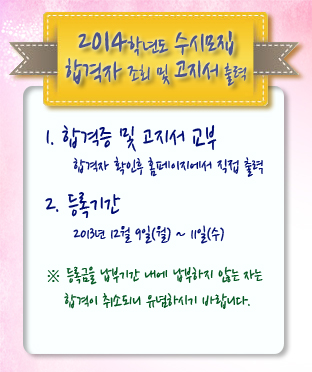 2014학년도 수시모집
합격자 조회 및 고지서 출력
1. 합격증 및 고지서 교부
합격자 확인후 홈페이지에서 직접 출력
2. 등록기간
2013년 12월 9일(월) ~ 11일(수)
※ 등록금을 납부기간 내에 납부하지 않는 자는
합격이 취소되니 유념하시기 바랍니다.